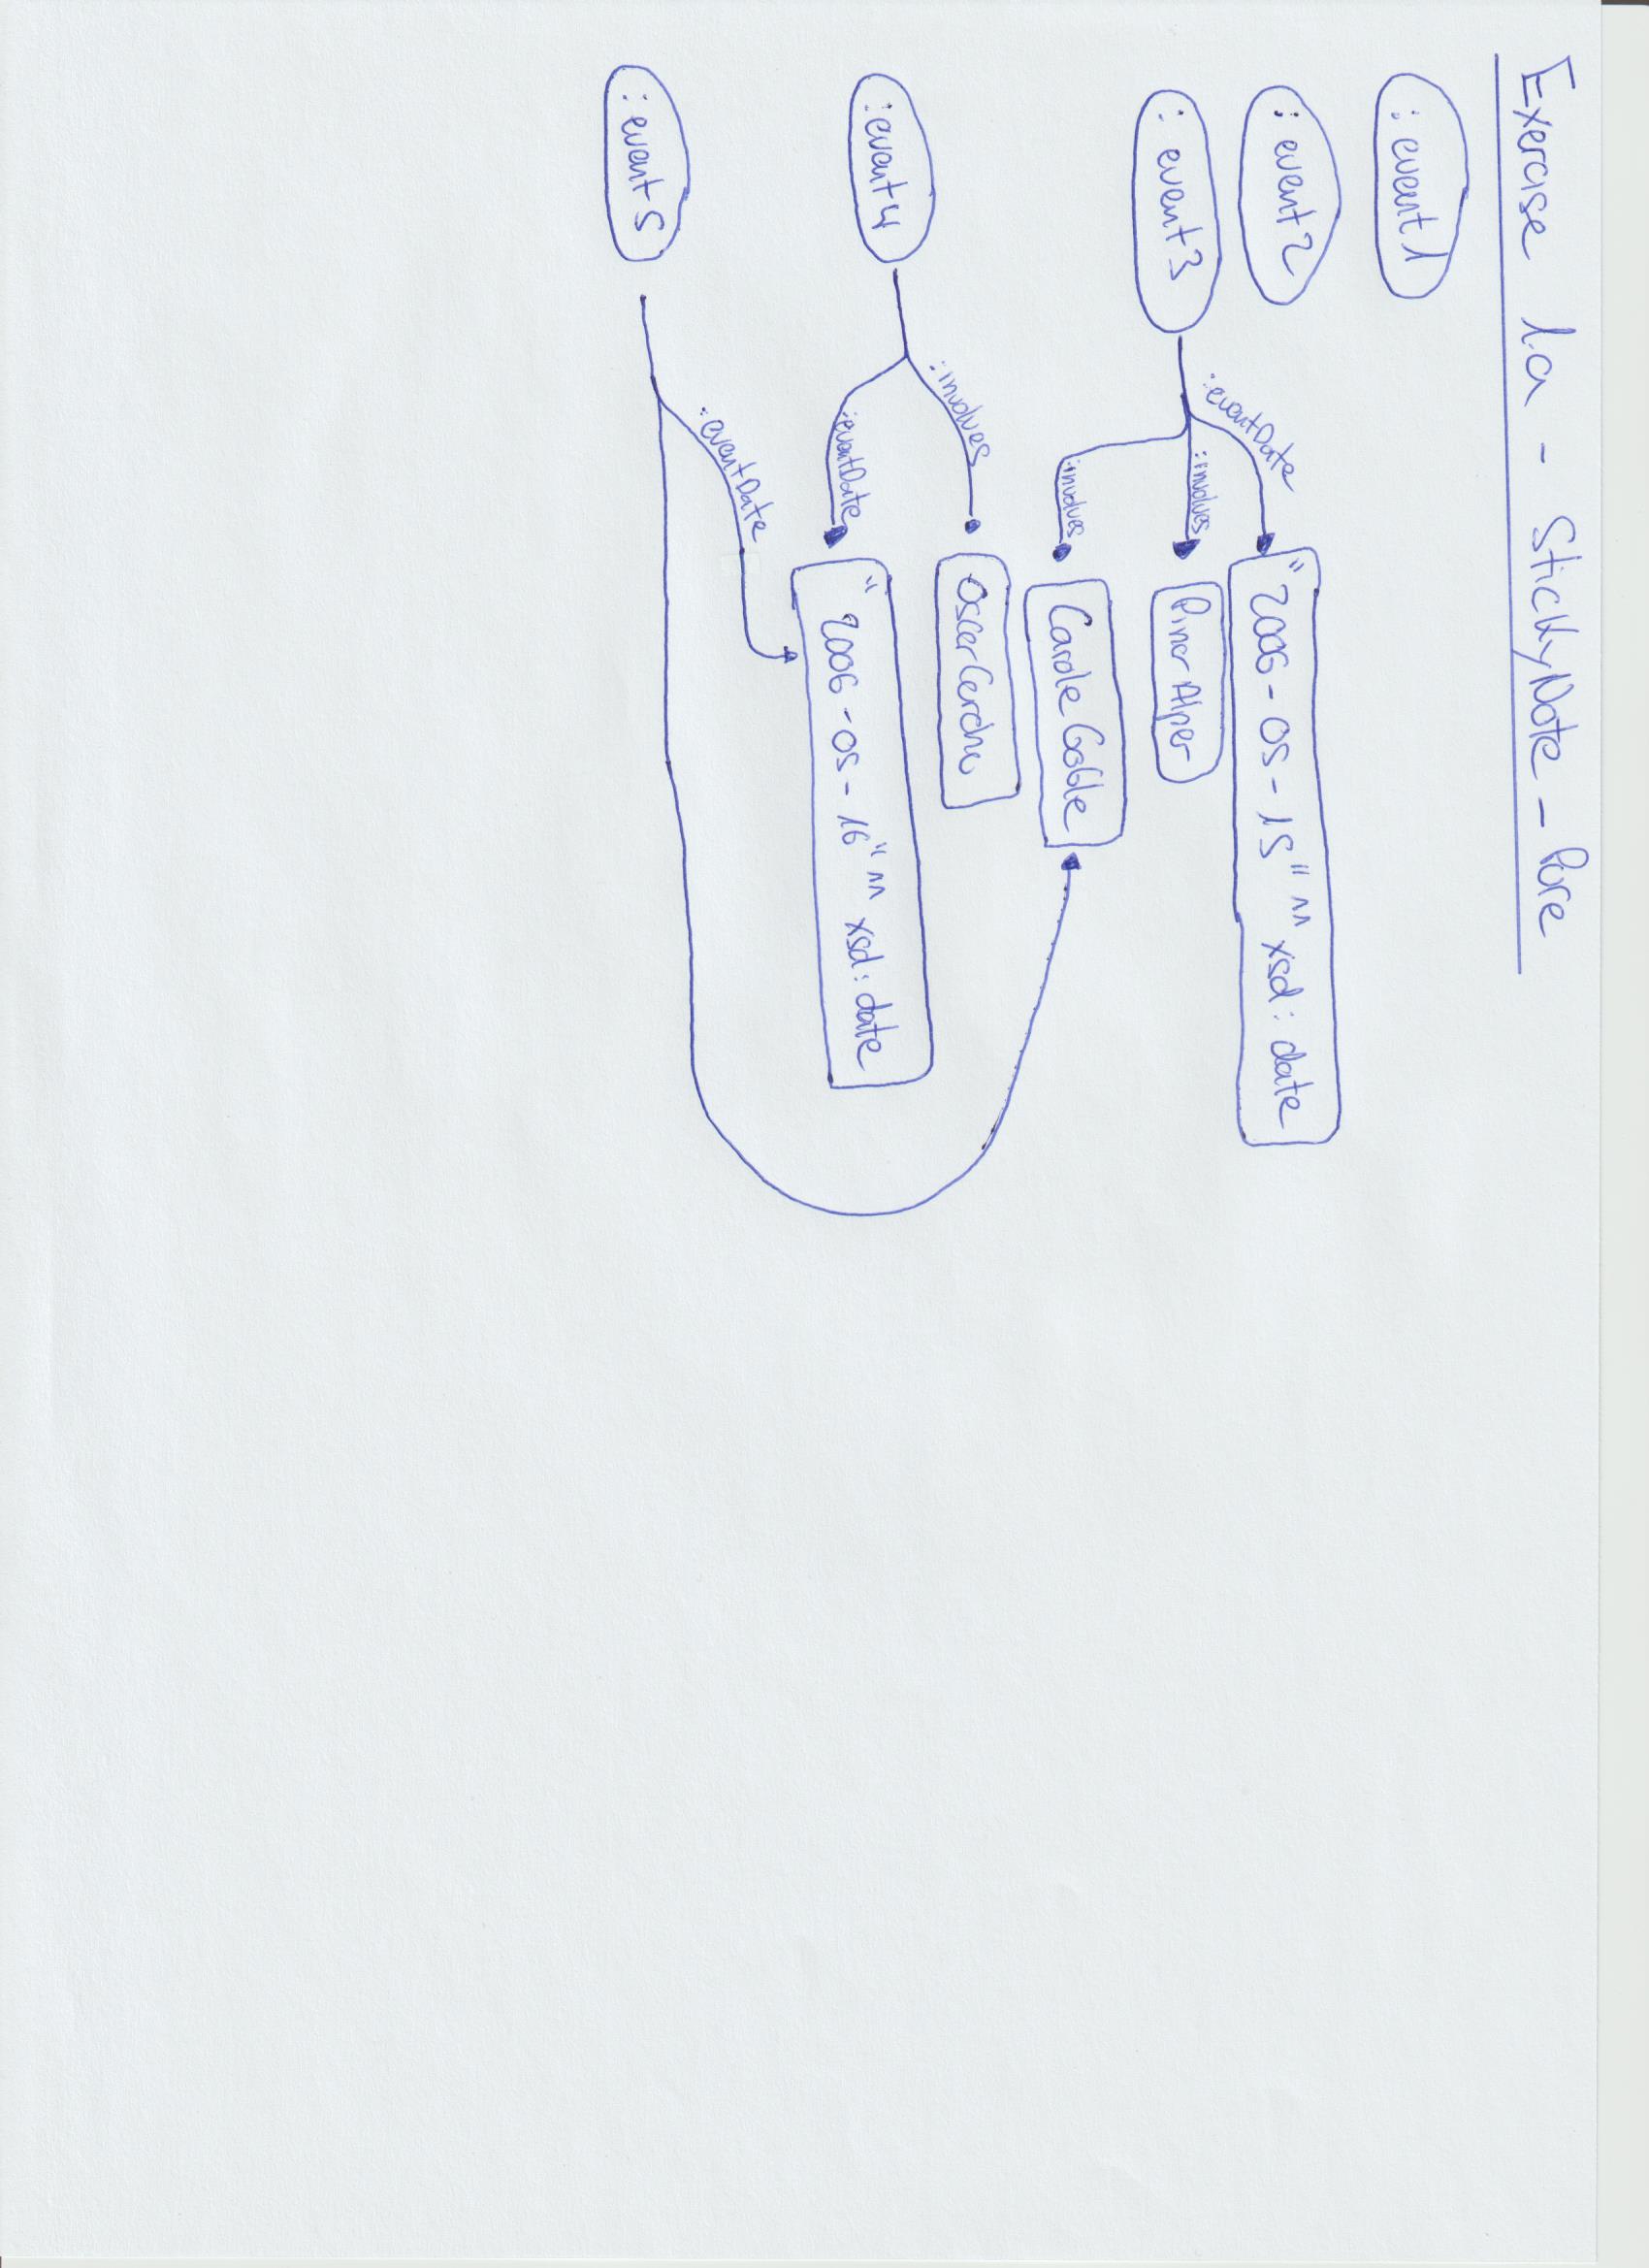 Exercise 1.a - StickyNote - Pure
:event1
:event2
:eventDate
"2006-05-15"^^xsd:date
:event3
:involves
Pinar Alper
:involves
Carole Goble
:involves
:event4
:eventDate
"2006-05-16"^^xsd:date
:eventDate
:event5